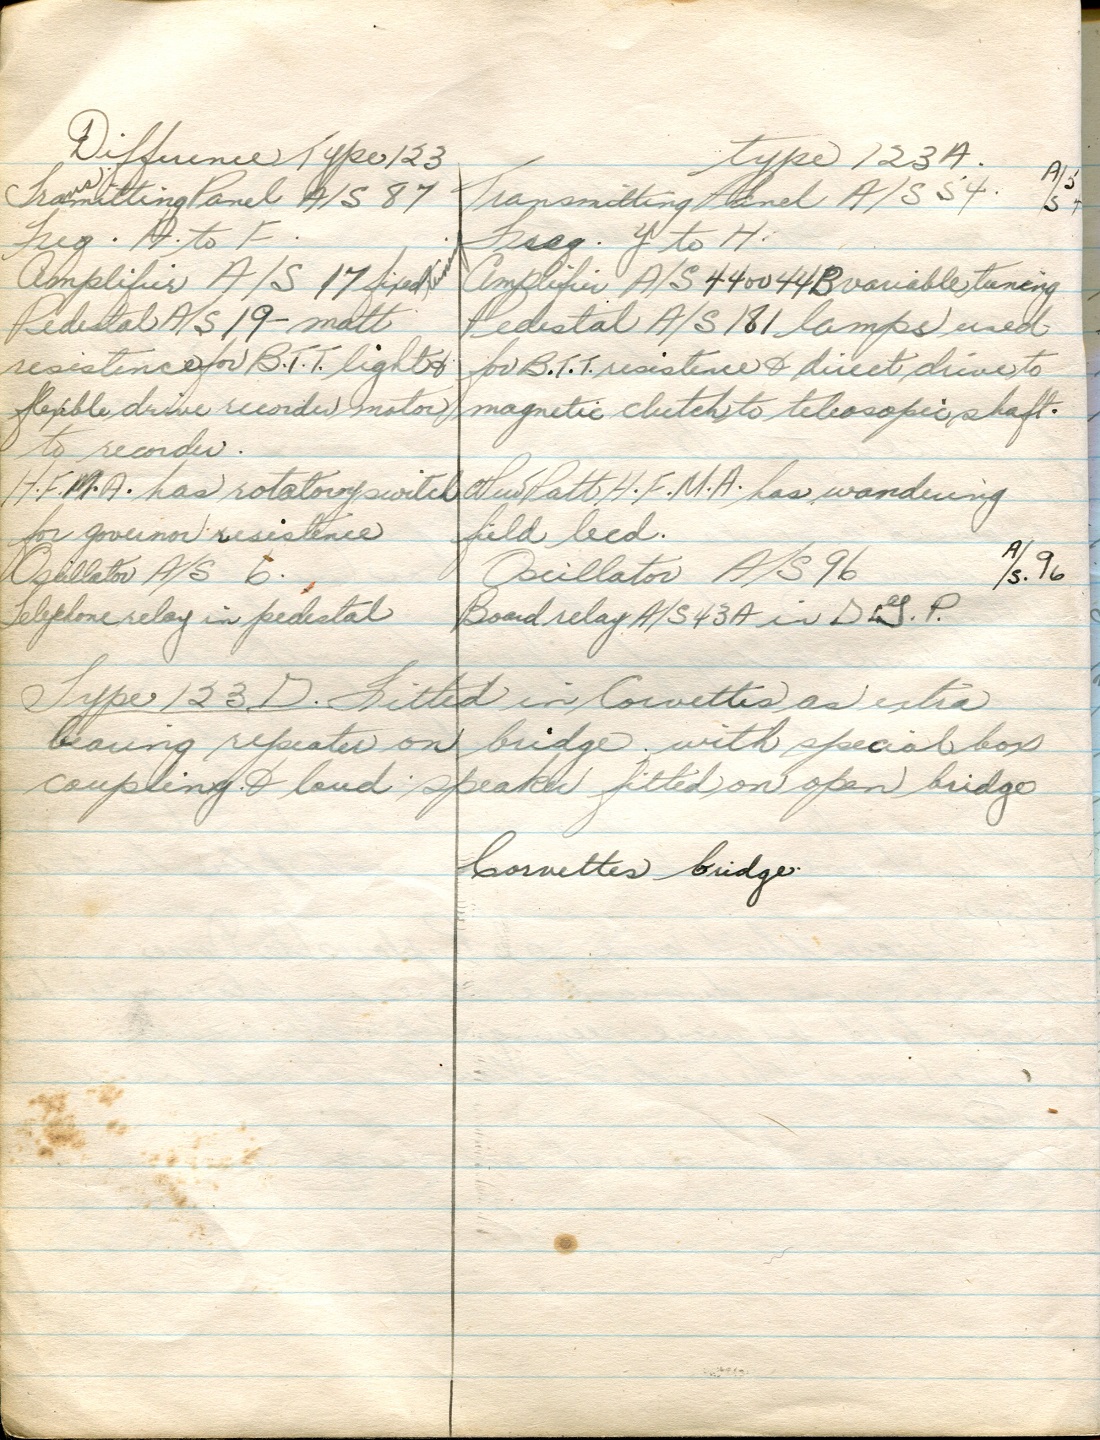 Difference Type 123
Transmitting Panel A/S 87
Freq. A. to F.
Amplifier A/S 17 fixed
Pedestal A/S 19 - matt
resistence for B.T.T. light &
flexible drive recorder motor
to recorder.
H.F.M.A. has rotatory switch
for governor resistence
Oscillator A/S 6.
Telephone relay in pedestal
type 123A.
Transmitting Panel A/S 54. A/S 54
Freq. Y to H.
Amplifier A/S 44 or 44B variable tuning
Pedestal A/S 181 lamps used
for B.T.T. resistence & direct drive to
magnetic clutch to telescopic shaft.
Patt H.F.M.A. has wandering
field lead.
Oscillator A/S 96 A/S. 96
Board relay A/S 43A in D.G.P.
Type 123 D. Fitted in Corvettes as extra
bearing repeater on bridge. with special box
coupling & loud speaker fitted on open bridge
Corvettes bridge